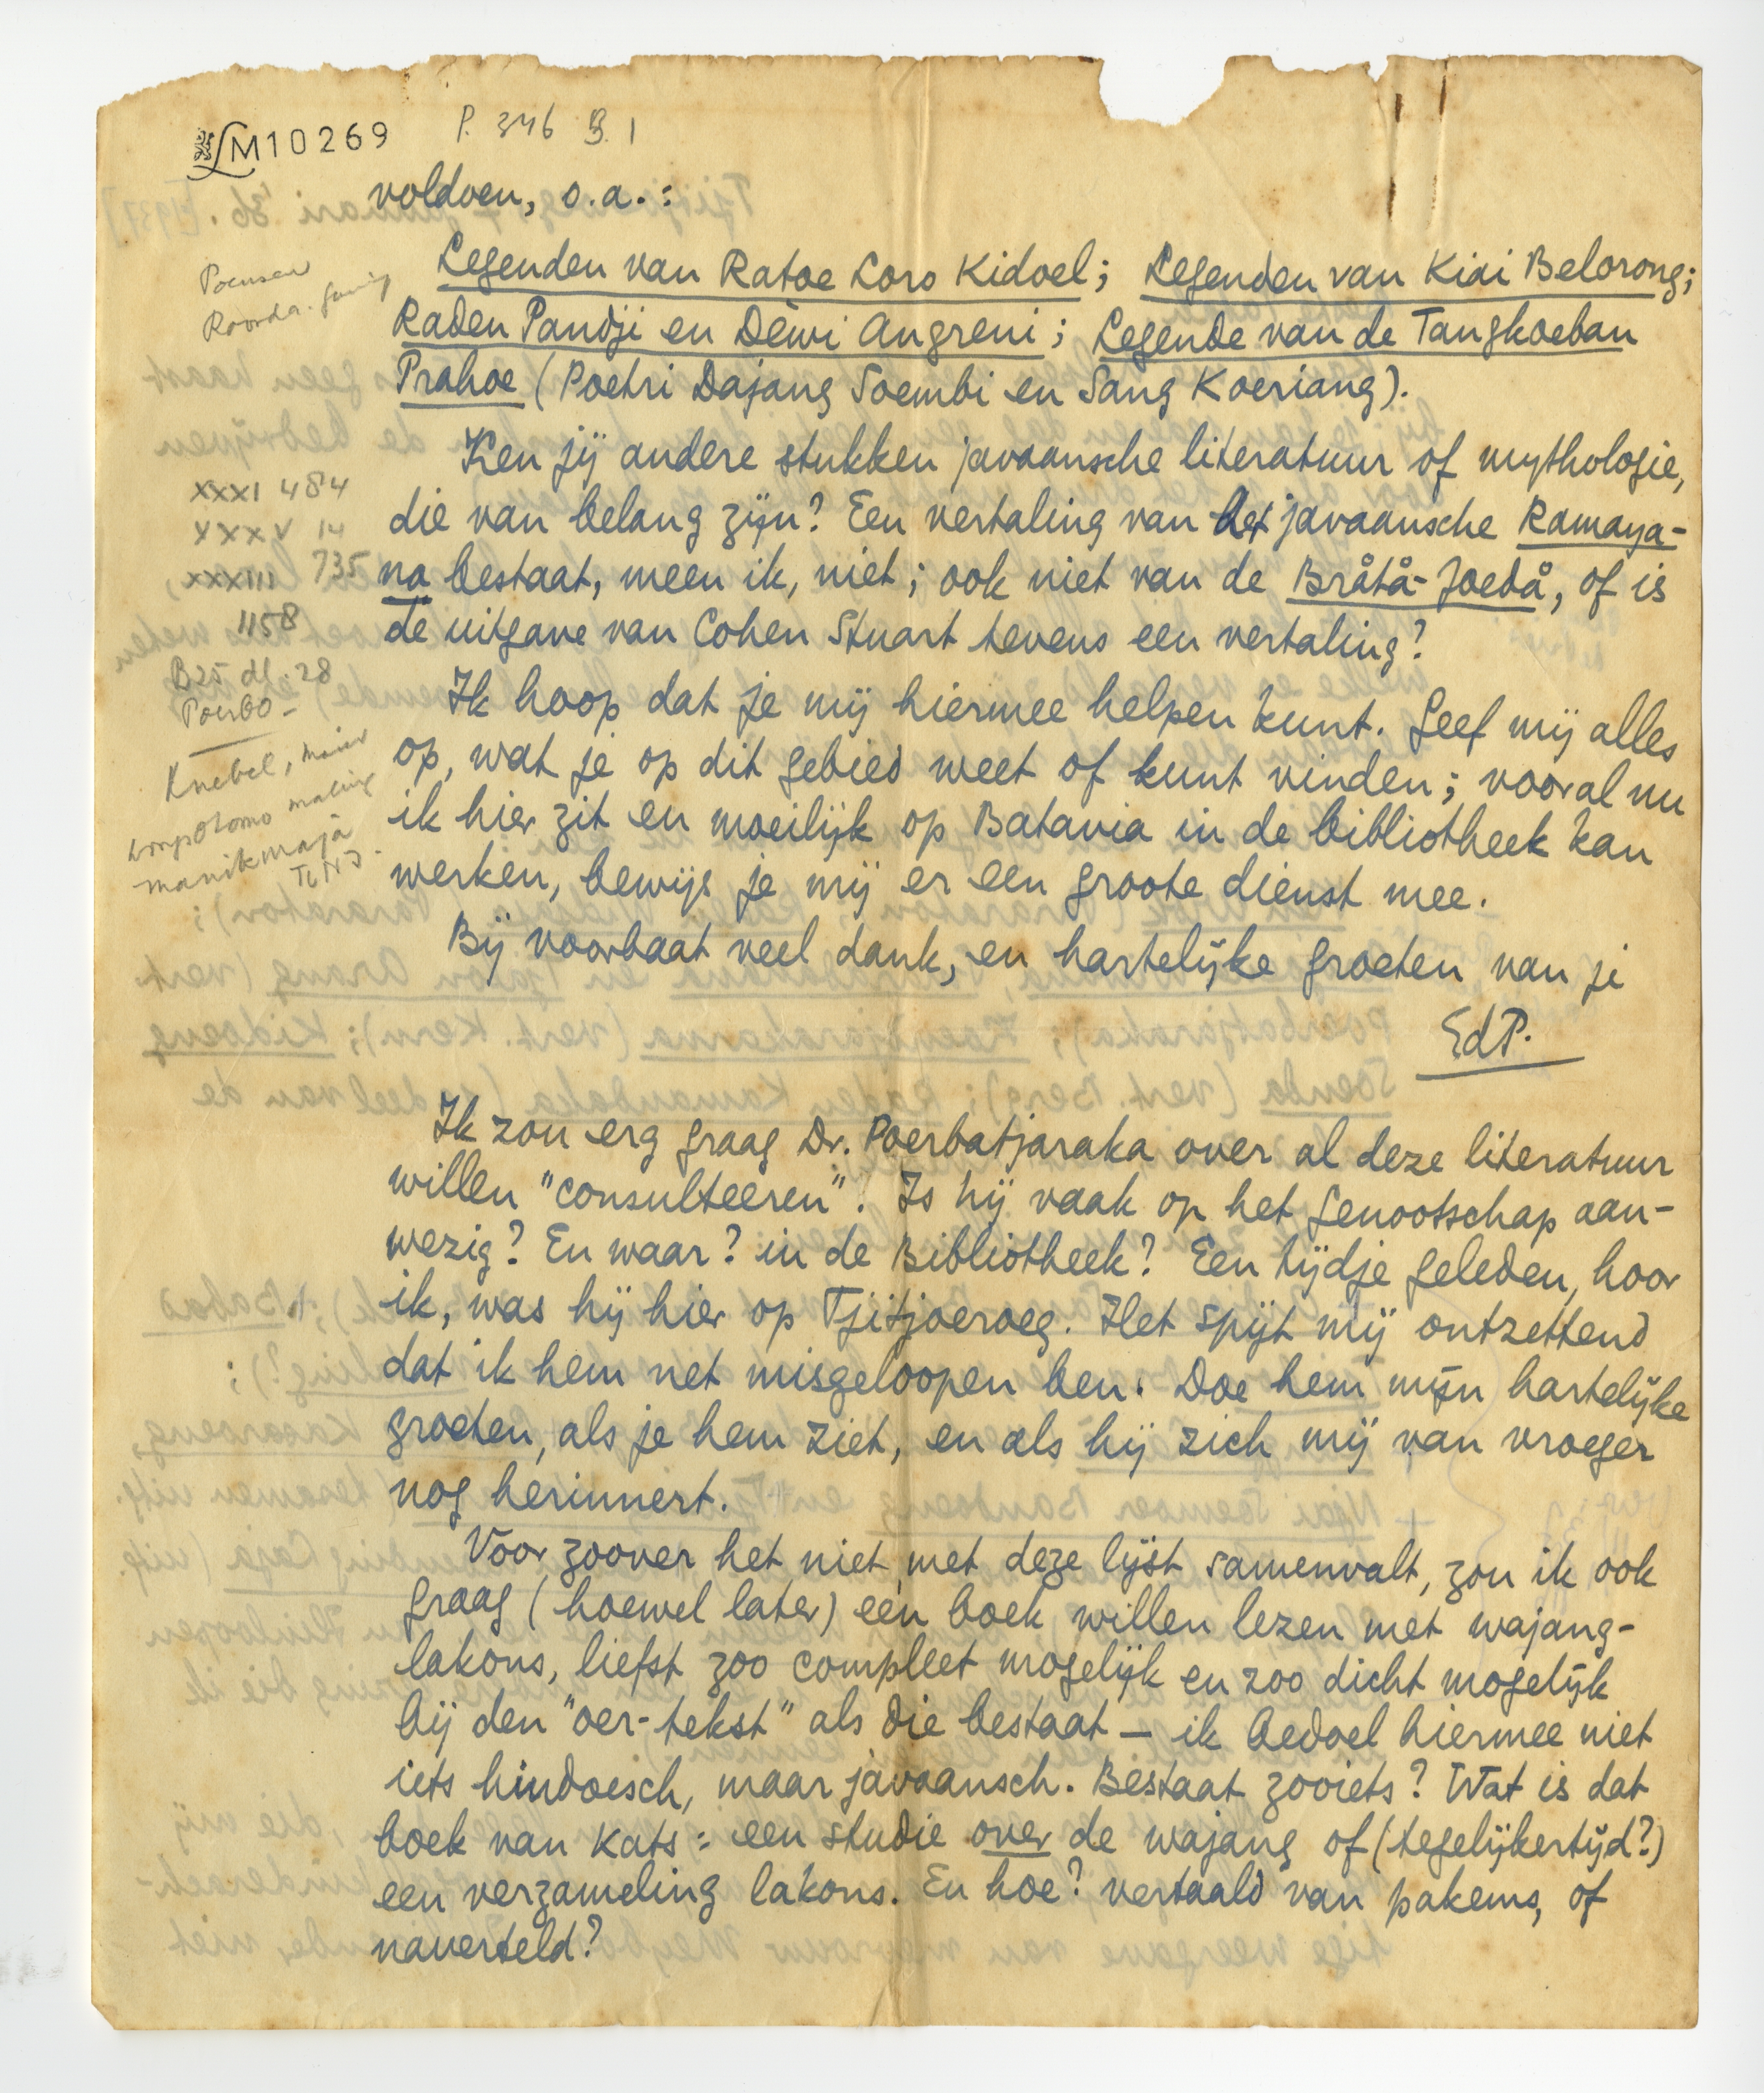 LM10269 P. 346 B. 1
voldoen, o.a.:
Legenden van Ratoe Loro Kidoel; Legenden van Kiai Belorong;
Raden Pandji en Dèwi Angreni; Legende van de Tangkoeban
Prahoe (Poetri Dajang Soembi en Sang Koeriang).
Ken jij andere stukken javaansche literatuur of mythologie,
die van belang zijn? Een vertaling van het javaansche Ramaya-
na bestaat, meen ik, niet; ook niet van de Bråtå-Joedå, of is
de uitgave van Cohen Stuart tevens een vertaling?
Ik hoop dat je mij hiermee helpen kunt. Geef mij alles
op, wat je op dit gebied weet of kunt vinden; vooral nu
ik hier zit en moeilijk op Batavia in de bibliotheek kan
werken, bewijs je mij er een groote dienst mee.
Bij voorbaat veel dank, en hartelijke groeten van je
EdP.
Ik zou erg graag Dr. Poerbatjaraka over al deze literatuur
willen "consulteeren". Is hij vaak op het Genootschap aan-
wezig? En waar? in de Bibliotheek? Een tijdje geleden, hoor
ik, was hij hier op Tjitjoeroeg. Het spijt mij ontzettend
dat ik hem net misgeloopen ben. Doe hem mijn hartelijke
groeten, als je hem ziet, en als hij zich mij van vroeger
nog herinnert.
Voor zoover het niet met deze lijst samenvalt, zou ik ook
graag (hoewel later) een boek willen lezen met wajang-
lakons, liefst zoo compleet mogelijk en zoo dicht mogelijk
bij den "oer-tekst" als die bestaat — ik bedoel hiermee niet
iets hindoesch, maar javaansch. Bestaat zooiets? Wat is dat
boek van Kats: een studie over de wajang of (tegelijkertijd?)
een verzameling lakons. En hoe? vertaald van pakems, of
naverteld?
Poensen
Roorda
XXXI 484
XXXV 14
XXXIII 735
1158
B25 dl. 28
Poerbo-
Knebel,
manikmaja